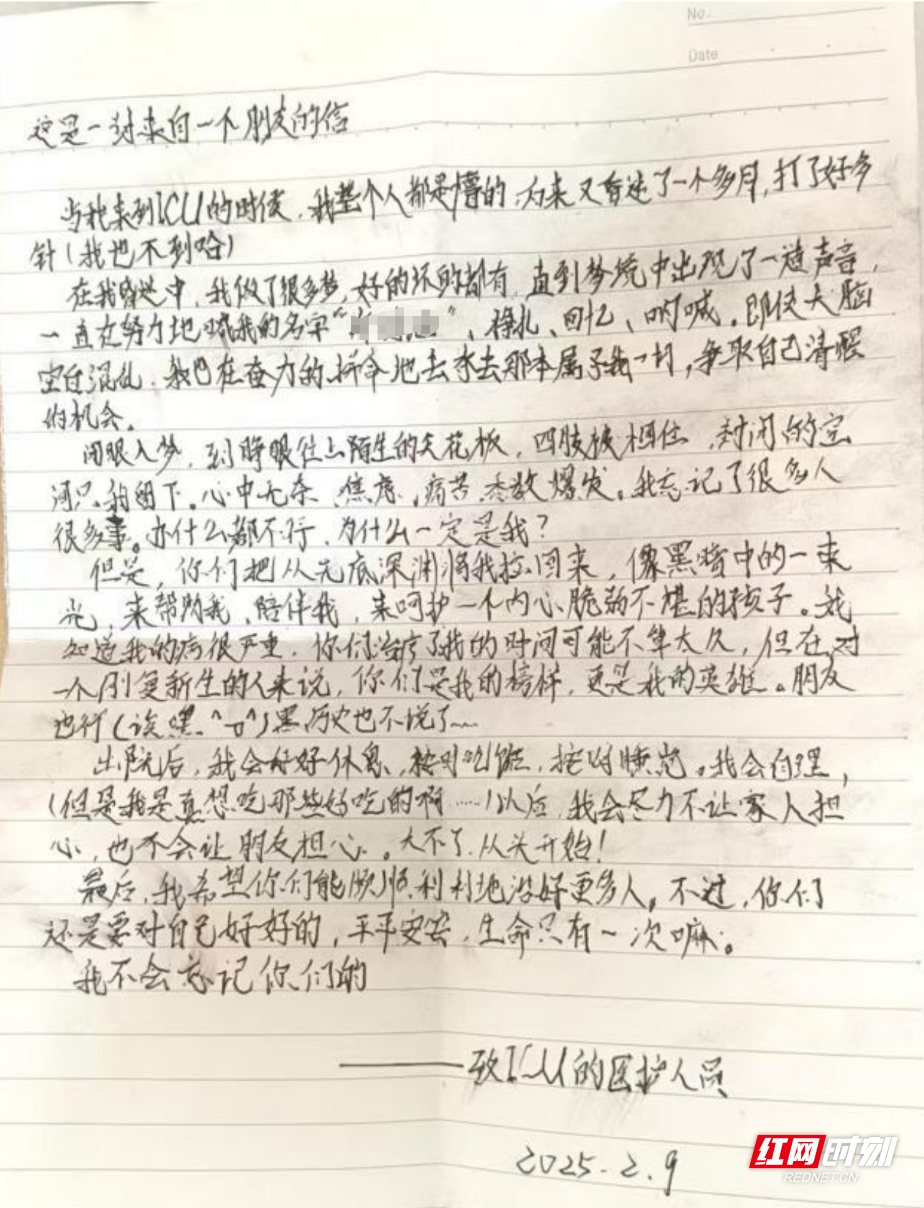 No.
Date
这是一封来自一个朋友的信
当我来到ICU的时候，我整个人都是懵的，后来又昏迷了一个多月，打了好多
针（我也不到哈）
在我昏迷中，我做了很多梦，好的坏的都有，直到梦境中出现了一道声音，
一直在努力地喊我的名字“”，挣扎、回忆、呐喊。即使大脑
空白混乱，我也在奋力的拼命地去求去那本属于我一切，争取自己清醒
的机会。
闭眼入梦，到睁眼往上陌生的天花板，四肢被捆住，封闭的空
间只我留下。心中无奈、焦虑、痛苦悉数爆发。我忘记了很多人
很多事。办什么都不行，为什么一定是我？
但是，你们把从无底深渊将我拉回来，像黑暗中的一束
光，来帮助我，陪伴我，来呵护一个内心脆弱不堪的孩子。我
知道我的病很严重，你们治疗了我的时间可能不算太久，但在对
一个刚复新生的人来说，你们是我的榜样，更是我的英雄。朋友
也行（诶嘿^ロ^）黑历史也不说了~~
出院后，我会好好休息，按时吃饭，按时睡觉。我会自理，
（但是我是真想吃那些好吃的啊……）以后，我会尽力不让家人担
心，也不会让朋友担心。大不了，从头开始！
最后，我希望你们能顺顺利利地治好更多人。不过，你们
还是要对自己好好的，平平安安，生命只有一次嘛。
我不会忘记你们的
——致ICU的医护人员
2025.2.9
红网时刻
REDNET.CN